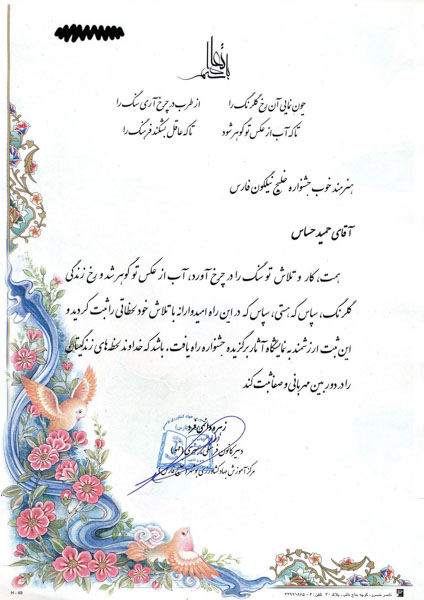 باسمه تعالی
چون نمایی آن رخ گلرنگ را از طرب در چرخ آری سنگ را
تا که آب از عکس تو گوهر شود تا که عقل بشکند فرهنگ را
هنرمند خوب جشنواره خلیج نیلگون فارس
آقای حمید حساس
همت، کار و تلاش تو سنگ را در چرخ آورد، آب از عکس تو گوهر شد و رخ زندگی
گلرنگ، سپاس که هستی، سپاس که در این راه امیدوارانه با تلاش خود لحظاتی را ثبت کردید و
این ثبت ارزشمند به نمایشگاه آثار برگزیده جشنواره راه یافت. باشد که خداوند لحظه های زندگیتان
را در دوربین مهربانی و صفا ثبت کند
زهره دانشی فرد
دبیر کانون فرهنگی هنری
مرکز آموزش جهاد کشاورزی بوشهر و خلیج فارس
H - 40
ناصر خسرو، کوچه حاج نایب، پلاک ۲۰